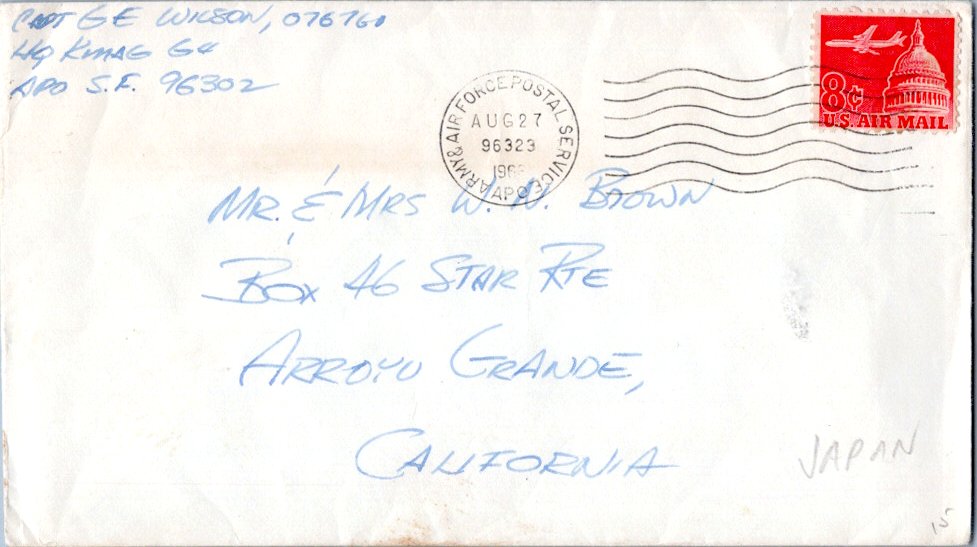 CAPT G E WILSON, 076760
HQ KMAG G4
APO S.F. 96302
ARMY & AIR FORCE POSTAL SERVICE
AUG 27
96323
APO
8¢
U.S. AIR MAIL
MR. & MRS W. N. BROWN
BOX 46 STAR RTE
ARROYO GRANDE,
CALIFORNIA
JAPAN
15